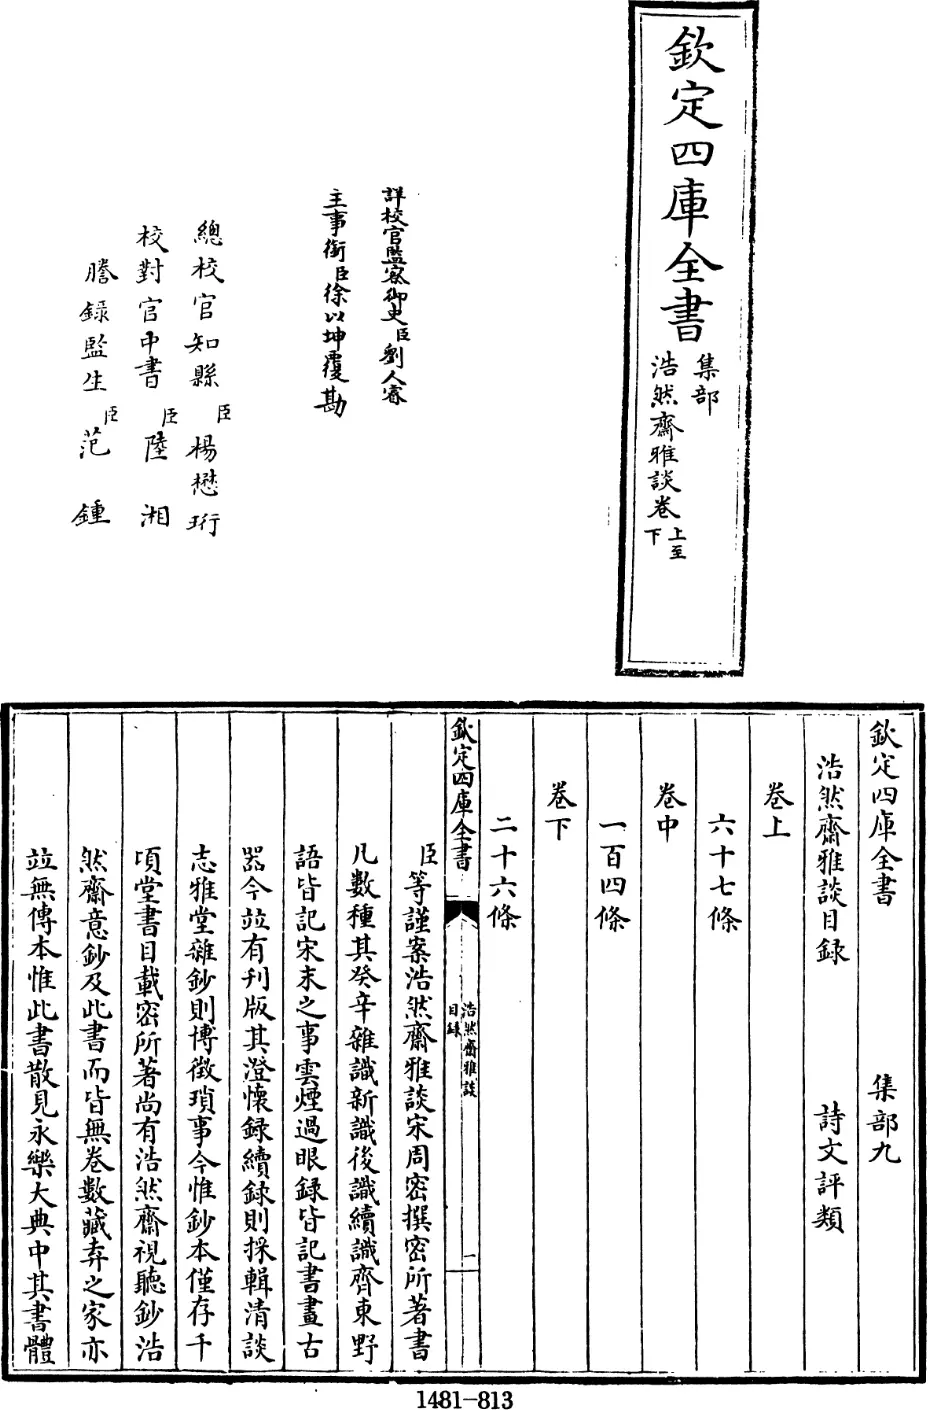 欽定四庫全書
集部
浩然齋雅談卷上至
下
詳校官監察御史臣劉人睿
主事銜臣徐以坤覆勘
總校官知縣臣楊懋珩
校對官中書臣陸湘
謄錄監生臣范鍾
欽定四庫全書 集部九
浩然齋雅談目録 詩文評類
卷上
六十七條
卷中
一百四條
卷下
二十六條
欽定四庫全書
浩然齋雅談
目録
一
臣等謹案浩然齋雅談宋周密撰密所著書
凡數種其癸辛雜識新識後識續識齊東野
語皆記宋末之事雲煙過眼録皆記書畫古
器今竝有刊版其澄懷録續録則採輯清談
志雅堂雜鈔則博徵瑣事今惟鈔本僅存千
頃堂書目載密所著尚有浩然齋視聽鈔浩
然齋意鈔及此書而皆無卷數藏弆之家亦
竝無傳本惟此書散見永樂大典中其書體
1481-813